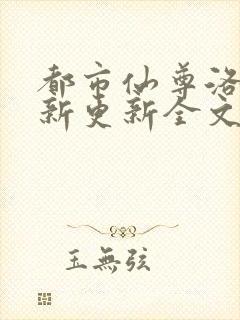 都市仙尊洛
新更新全文
玉無弦